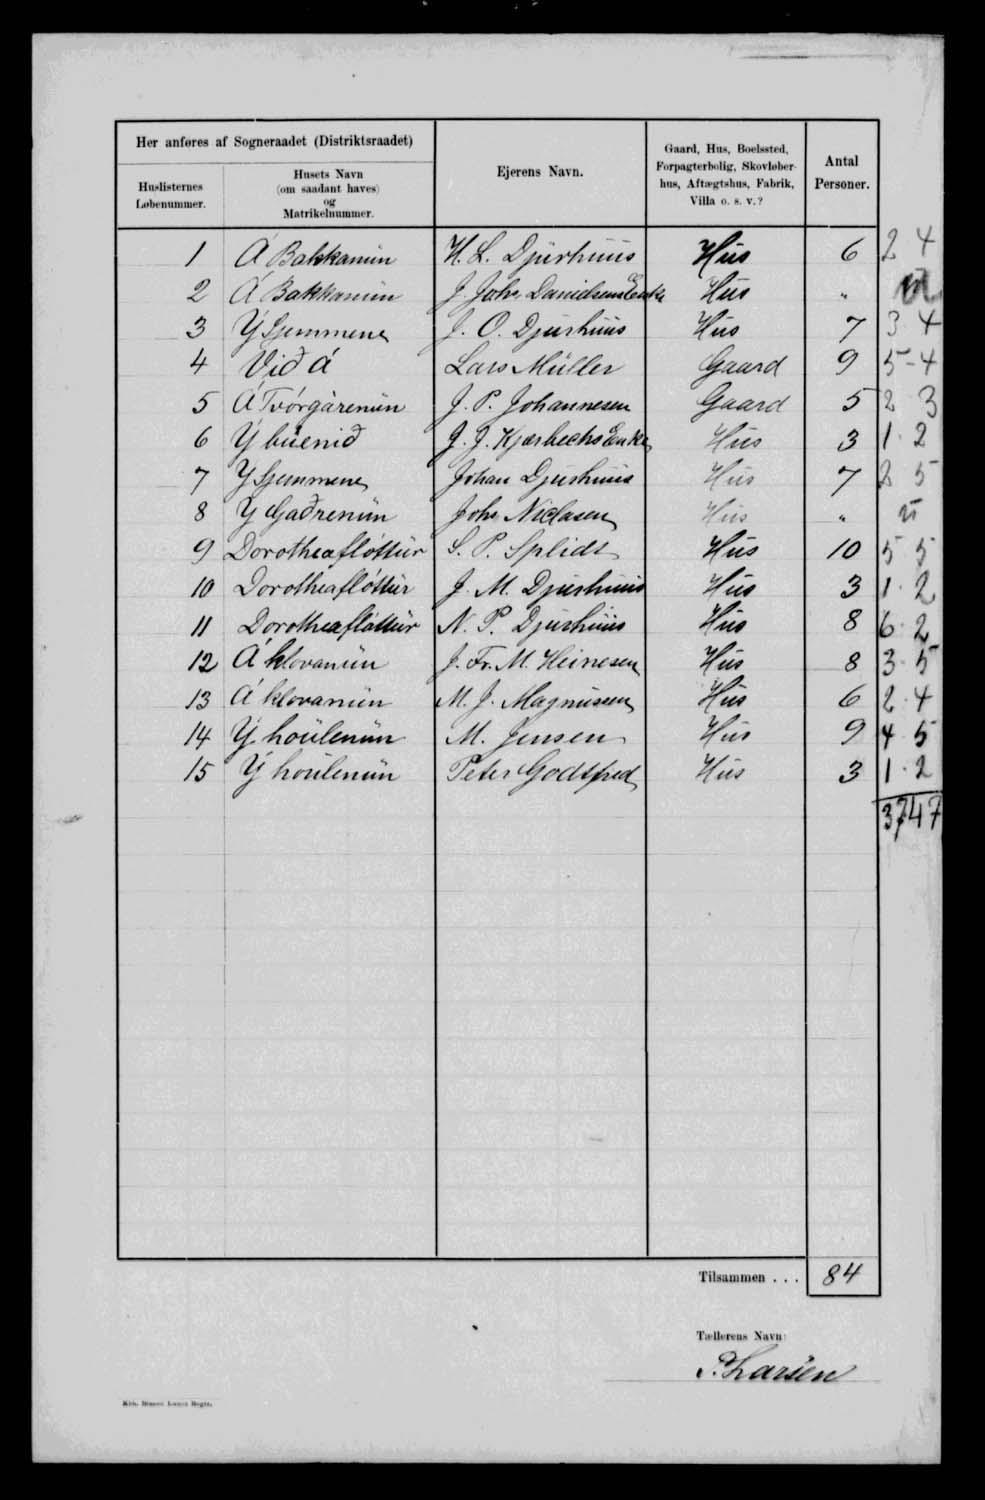 Her anføres af Sogneraadet (Distriktsraadet)
Huslisternes Løbenummer.
Husets Navn (om saadant haves) og Matrikelnummer.
Ejerens Navn.
Gaard, Hus, Boelssted, Forpagterbolig, Skovløberhus, Aftægtshus, Fabrik, Villa o. s. v.?
Antal Personer.
1 Á Bakkanún H. L. Djurhuus Hus 6 2 4
2 Á Bakkanún J. Johs Danielsens Enke Hus "
3 Ý Gjemmene J. O. Djurhuus Hus 7 3 4
4 Við á Lars Müller Gaard 9 5-4
5 Á Tvørgárenún J. P. Johannesen Gaard 5 2 3
6 Ý búenið J. J. Kjærbechs Enke Hus 3 1 · 2
7 Y Gjemmene Johan Djurhuus Hus 7 2 5
8 Y Gaðrenún Johs Niclasen Hus "
9 Dorotheafløttur S. P. Splidt Hus 10 5 5
10 Dorotheafløttur J. M. Djurhuus Hus 3 1 · 2
11 Dorotheafløttur N. P. Djurhuus Hus 8 6 · 2
12 Á klovanún J. Fr. M. Heinesen Hus 8 3 · 5
13 Á klovanún M. J. Magnussen Hus 6 2 · 4
14 Ý houlenún M. Jensen Hus 9 4 · 5
15 Ý houlenún Peter Godtfred Hus 3 1 · 2
37 47
Tilsammen . . . 84
Tællerens Navn:
P. Larsen